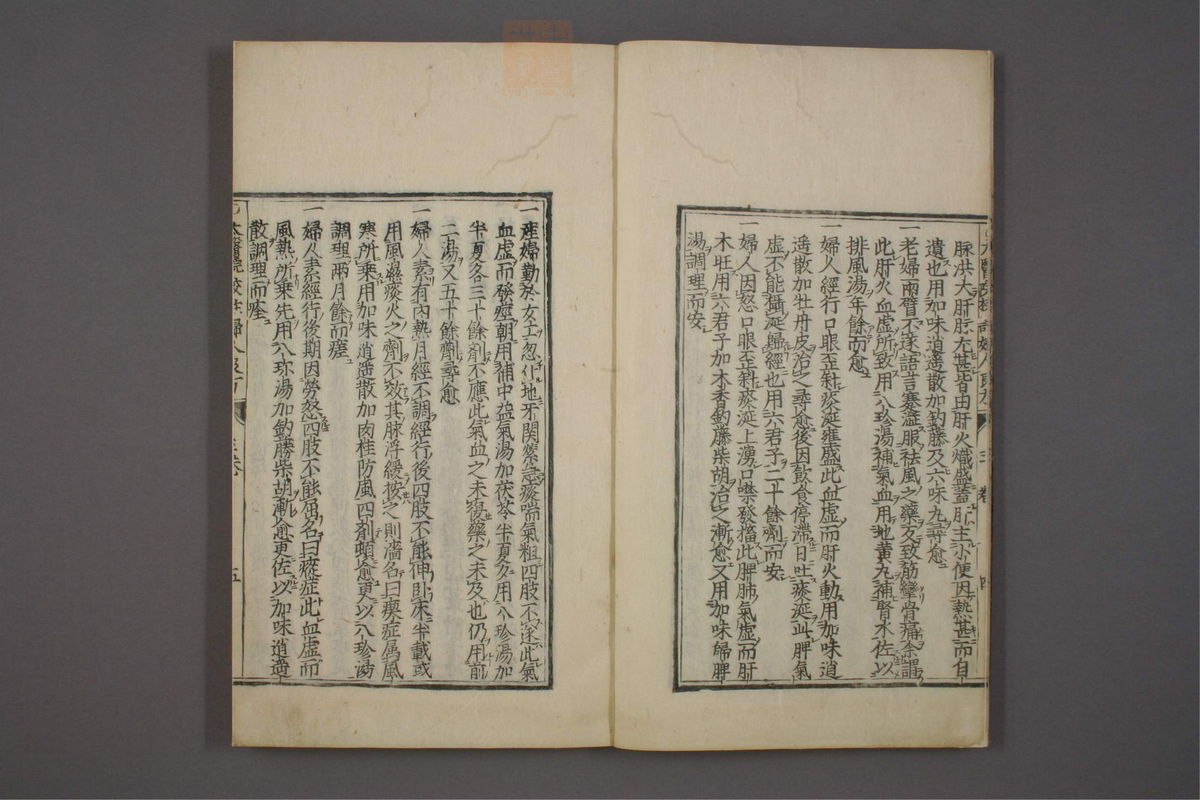 脉洪大肝脉尤甚皆由肝火熾盛蓋肝主小便因熱甚而自
遺也用加味逍遥散加釣藤及六味丸尋愈
一老婦兩臂不遂語言蹇澁服祛風之藥反致筋攣骨痛余謂
此肝火血虚所致用八珍湯補氣血用地黄丸補腎水佐以
排風湯年餘而愈
一婦人經行口眼歪斜痰涎壅盛此血虚而肝火動用加味逍
遥散加牡丹皮治之尋愈後因飲食停滯日吐痰涎此脾氣
虚不能攝涎歸經也用六君子二十餘劑而安
一婦人因怒口眼歪斜痰涎上湧口噤發搐此脾肺氣虚而肝
木旺用六君子加木香釣藤柴胡治之漸愈又用加味歸脾
湯調理而安
三卷 四
一産婦勤於女工忽仆地牙関緊急痰喘氣粗四肢不遂此氣
血虚而發痙朝用補中益氣湯加茯苓半夏夕用八珍湯加
半夏各三十餘剤不應此氣血之未復藥之未及也仍用前
二湯又五十餘劑尋愈
一婦人素有内熱月經不調經行後四肢不能伸卧床半載或
用風濕痰火之劑不效其脉浮緩按之則濇名曰痿症属風
寒所乗用加味逍遥散加肉桂防風四剤頓愈更以八珍湯
調理兩月餘而瘥
一婦人素經行後期因勞怒四肢不能屈名曰瘛症此血虚而
風熱所乗先用八珎湯加釣藤柴胡漸愈更佐以加味逍遥
散調理而痊
太醫院校註婦人良方 三卷 五